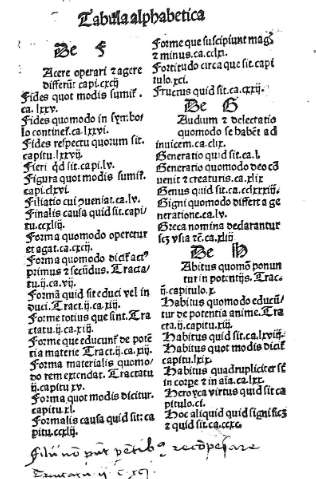 Tabula alphabetica
De F
Facere operari & agere
differūt capi.cxcij
Fides quot modis sumit̃.
ca.lxxv.
Fides quomodo in sym̄bo/
lo continet̃.ca.lxxvi.
Fides respectu quorum sit.
capitu.lxxvij.
Fieri qd sit.capi.lv.
Figura quot modis sumit̃.
capi.clxvi.
Filiatio cui ɔueniat.ca.lvi.
Finalis causa quid sit.capi/
tu.ccxliij.
Forma quomodo operetur
et agat.ca.cxcij.
Forma quomodo dicit̃ actꝰ
primus & secūdus. Tracta/
tu.ij.ca.vij.
Formā quid sit educi vel in
duci. Tract.ij.ca.xij.
Forme totius que sint. Tra
ctatu.ij.ca.xiij.
Forme que educunt̃ de potē
tia materie Tract.ij.ca.xij.
Forma materialis quomo/
do rem extendat. Tractatu
ij.capitu.xv.
Forma quot modis dicitur.
capitu.xl.
Formalis causa quid sit.ca
pitu.ccxlij.
Forme que suscipiunt magꝭ
& minus.ca.cclxi.
Fortitudo circa que sit capi
tulo.xci.
Fructus quid sit.ca.cxxij.
De G
Gaudium & delectatio
quomodo se habēt ad
inuicem.ca.clix.
Generatio quid sit.ca.l.
Generatio quomodo deo cō
uenit & creaturis.ca.xlix
Genus quid sit.ca.cclxxxiij.
Gigni quomodo differt a ge
neratione.ca.lv.
Greca nomina declarantur
sc3 vsia &c̄.ca.xliij
De H
Habitus quomō ponun
tur in potentijs. Trac.
ij.capitulo.x.
Habitus quomodo educūt̃
tur de potentia anime. Tra
cta.ij.capitu.xiij.
Habitus quid sit.ca.lxviij.
Habitus quot modis dicit̃
capitu.lxix.
Habitus quadrupliciter sē
in corpe & in aīa.ca.lxx.
Heroyca virtus quid sit ca
pitulo.ci.
Hoc aliquid quid significꝫ
& quid sit.ca.ccxc.